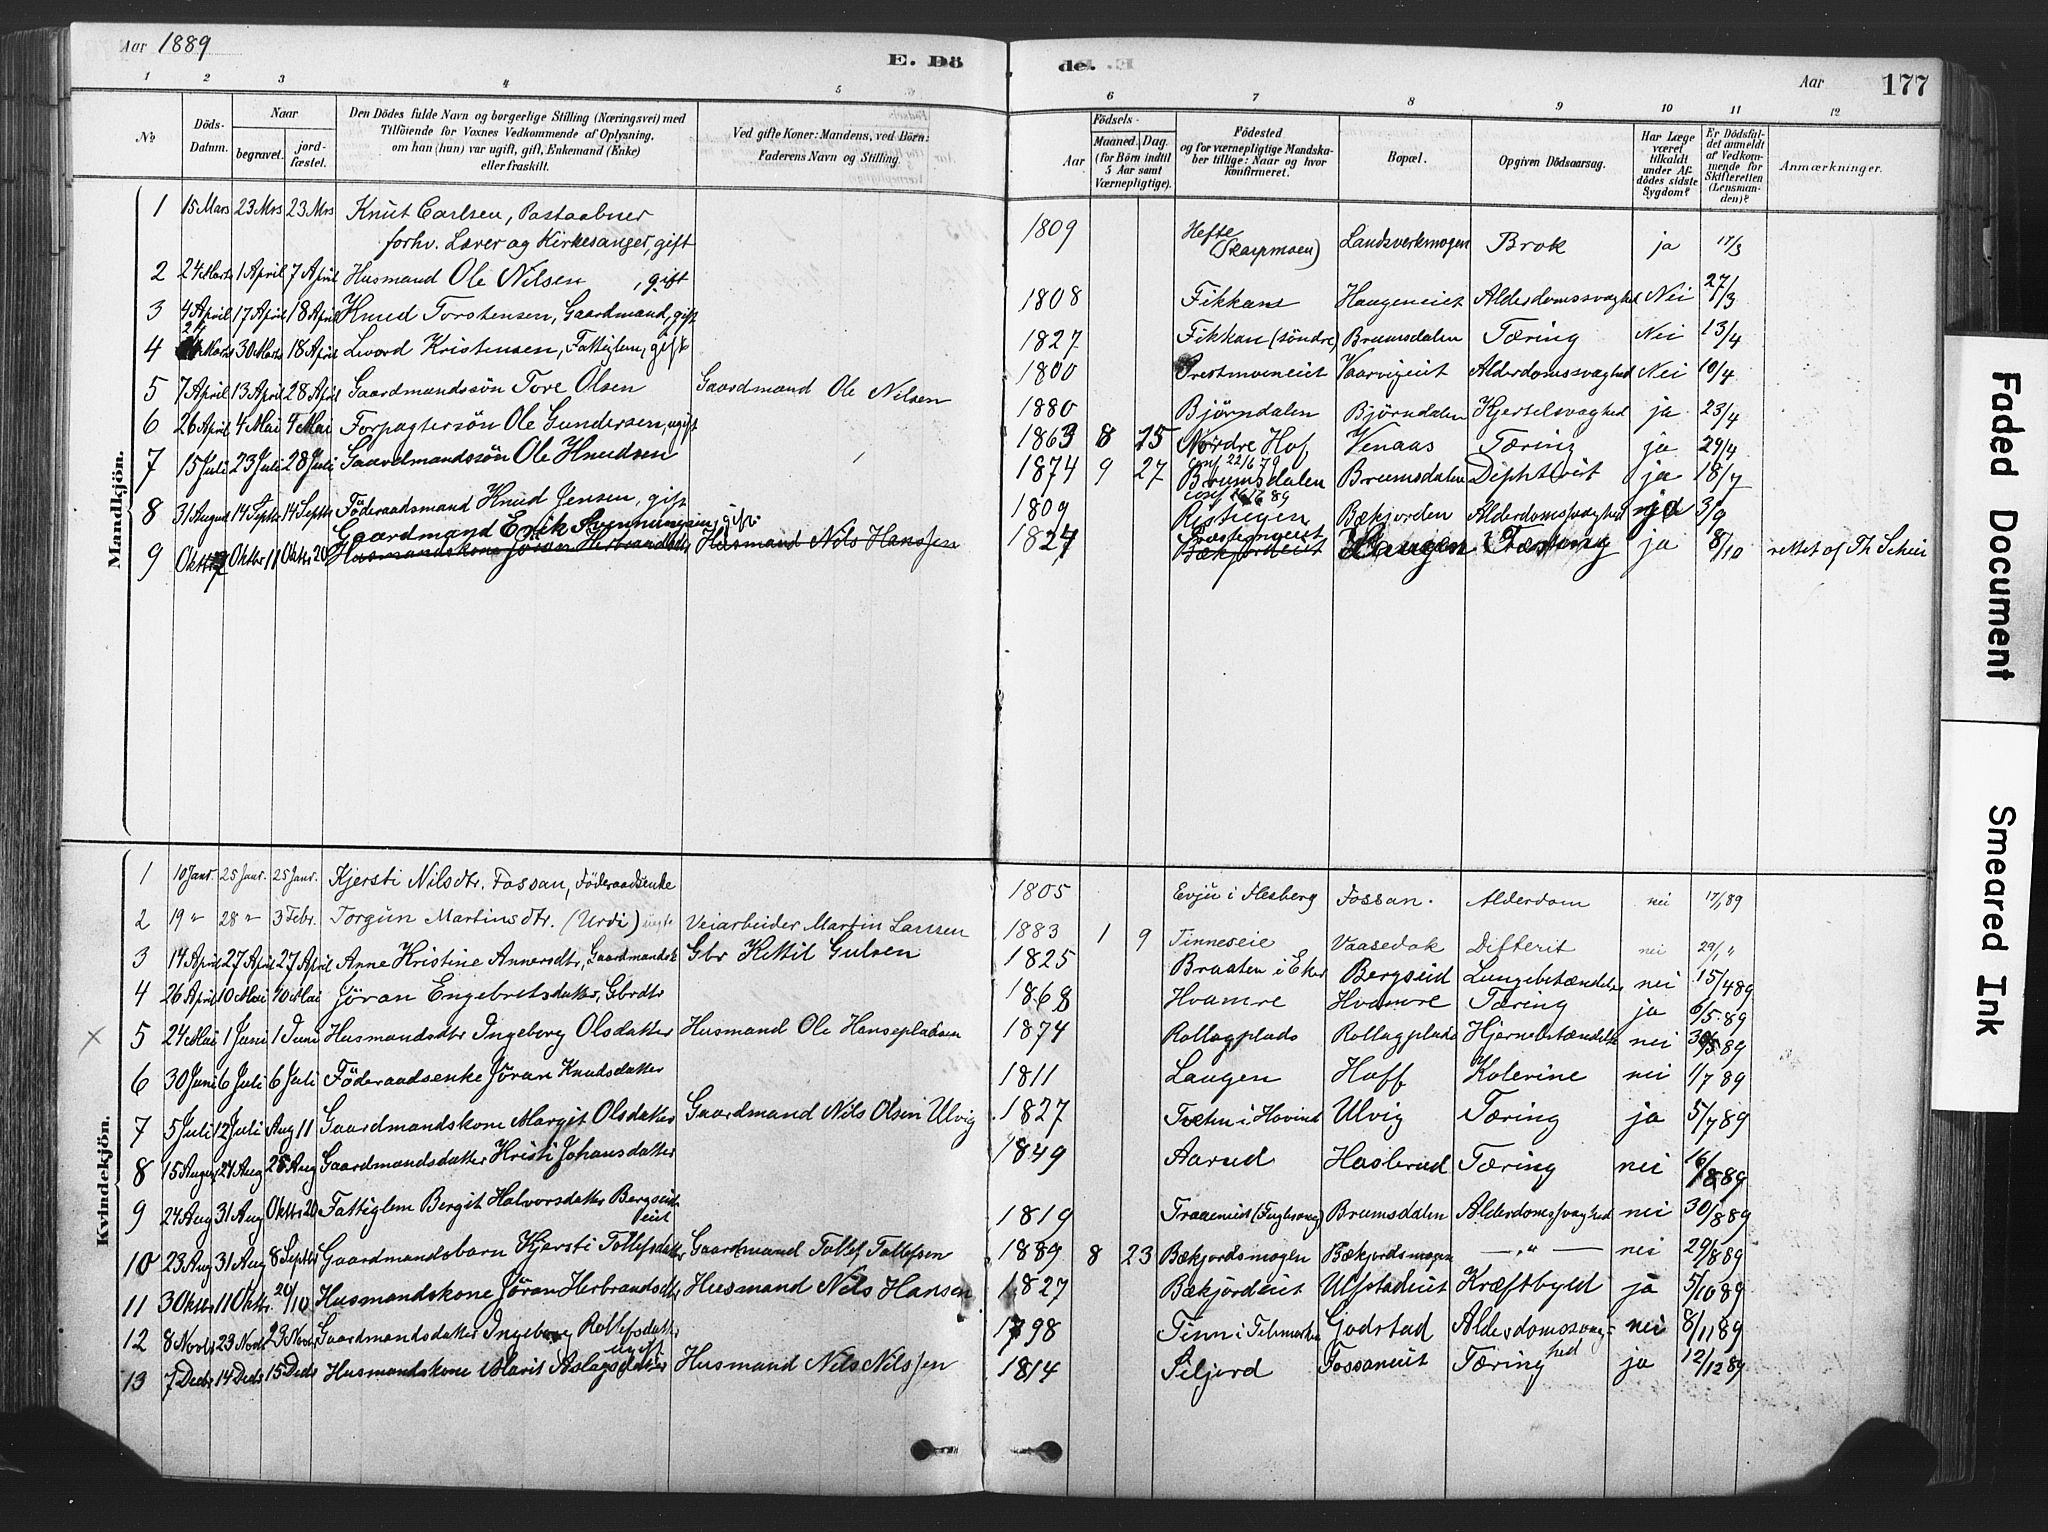 Aar 1889
E. Dö de.
Aar 177
1 2 3 4 5 6 7 8 9 10 11 12
No
Döds-Datum.
Naar begravet. jord-fæstet.
Den Dödes fulde Navn og borgerlige Stilling (Næringsvei) med
Tilföiende for Voxnes Vedkommende af Oplysning,
om han (hun) var ugift, gift, Enkemand (Enke)
eller fraskilt.
Ved gifte Koner: Mandens, ved Börn:
Faderens Navn og Stilling.
Födsels-
Aar Maaned. Dag.
(for Börn indtil
5 Aar samt
Værnepligtige).
Födested
og for værnepligtige Mandska-
ber tillige: Naar og hvor
konfirmeret.
Bopæl.
Opgiven Dödsaarsag.
Har Læge
været
tilkaldt
under Af-
dödes sidste
Sygdom?
Er Dödsfal-
det anmeldt
af Vedkom-
mende for
Skifteretten
(Lensman-
den)?
Anmærkninger.
Mandkjön.
1 15 Mars 23 Mrs 23 Mrs Knut Carlsen, Postaabner
forhv. Lærer og Kirkesanger, gift 1809 Hefte (Skarpmoen) Landsverkmogen Brok ja 17/3
2 24 Marts 1 April 7 April Husmand Ole Nilsen, gift 1808 Fikkan Haugeneiet Alderdomssvaghed Nei 27/3
3 4 April 17 April 18 April Knud Torstensen, Gaardmand, gift 1827 Fikkan (söndre) Brumsdalen Tæring Nei 13/4
4 24 Marts 30 Marts 18 April Levord Kristensen, Fattiglem, gift 1800 Prestmoeneiet Vaarvigeiet Alderdomssvaghed Nei 10/4
5 7 April 13 April 28 April Gaardmandssön Tore Olsen Gaardmand Ole Nilsen 1880 Björndalen Björndalen Hjertelsvaghed ja 23/4
6 26 April 4 Mai 4 Mai Forpagtersön Ole Gundersen, ugift 1863 8 25 Nordre Hof Venaas Tæring ja 29/4
conf 22/6 79
7 15 Juli 23 Juli 28 Juli Gaardmandssön Ole Knudsen 1874 9 27 Brumsdalen Brumsdalen Diphterit ja 18/7
8 31 August 14 Septbr 14 Septbr Föderaadsmand Knud Jensen, gift 1809 Ristiegen Bækjorden Alderdomssvaghed nja 3/9
Gaardmand Erik Svenningsen, gift
9 Oktbr 7 Oktbr 11 Oktbr 20 Husmandskone Jöran Herbrandsdtr Husmand Nils Hanssen 1827 Bækjordeiet Haugen Tæring ja 8/10 rettet af Th Scheie
Kvindekjön.
1 10 Janr. 25 Janr. 25 Janr. Kjersti Nilsdtr. Fossan, Föderaadsenke 1805 Evju i Flesberg Fossan. Alderdom nei 17/1 89
2 19 " 28 " 3 Febr. Torgun Martinsdtr. (Urdi) ugift Veiarbeider Martin Larssen 1883 1 9 Tinneseie Vaasedok Difterit nei 29/1 "
3 14 April 27 April 27 April Anne Kristine Annersdtr, Gaardmandsk Gbr Kittil Gulsen 1825 Braaten i Eker Bergseid Lungebetændelse nei 15/4 89
4 26 April 10 Mai 10 Mai Jöran Engebretsdatter, Gbrdtr 1868 Hvamre Hvamre Tæring ja 6/5 89
× 5 24 Mai 1 Juni 1 Juni Husmandsdtr Ingeborg Olsdatter Husmand Ole Hansepladsen 1874 Rollagplads Rollagplads Hjernebetændelse nei 30/5 89
6 30 Juni 6 Juli 6 Juli Föderaadsenke Jöran Knudsdatter 1811 Laugen Hoff Kolerine nei 1/7 89
7 5 Juli 12 Juli Aug 11 Gaardmandskone Margit Olsdatter Gaardmand Nils Olsen Ulvig 1827 Trætin i Hovind Ulvig Tæring ja 5/7 89
8 15 August 24 Aug 25 Aug Gaardmandsdatter Kristi Johansdatter 1849 Aarud Haslerud Tæring nei 16/8 89
9 24 Aug 31 Aug Oktbr 20 Fattiglem Bergit Halvorsdatter Bergseid eiet 1819 Traaeneiet (Fuglesang) Brumsdalen Alderdomssvaghed nei 30/8 89
10 23 Aug 31 Aug 8 Septbr Gaardmandsbarn Kjersti Tollefsdatter Gaardmand Tollef Tollefsen 1889 8 23 Bækjordsmogen Bækjordsmogen — „ — nei 29/8 89
11 3 Oktbr 11 Oktbr 20/10 Husmandskone Jöran Herbrandsdtr Husmand Nils Hansen 1827 Bækjordeiet Ulfstadeiet Kræftbyld ja 5/10 89
12 8 Novbr 23 Novbr 23 Novbr Gaardmandsdatter Ingeborg Rollefsdatter ugift 1798 Tinn i Telemarken Gjodstad Alderdomssvaghed nei 8/11 89
13 7 Decbr 14 Decbr 15 Decbr Husmandskone Marit Aslagsdatter Husmand Nils Nilssen 1814 Siljord Fossaneiet Tæring ja 12/12 89
Faded Document
Smeared Ink